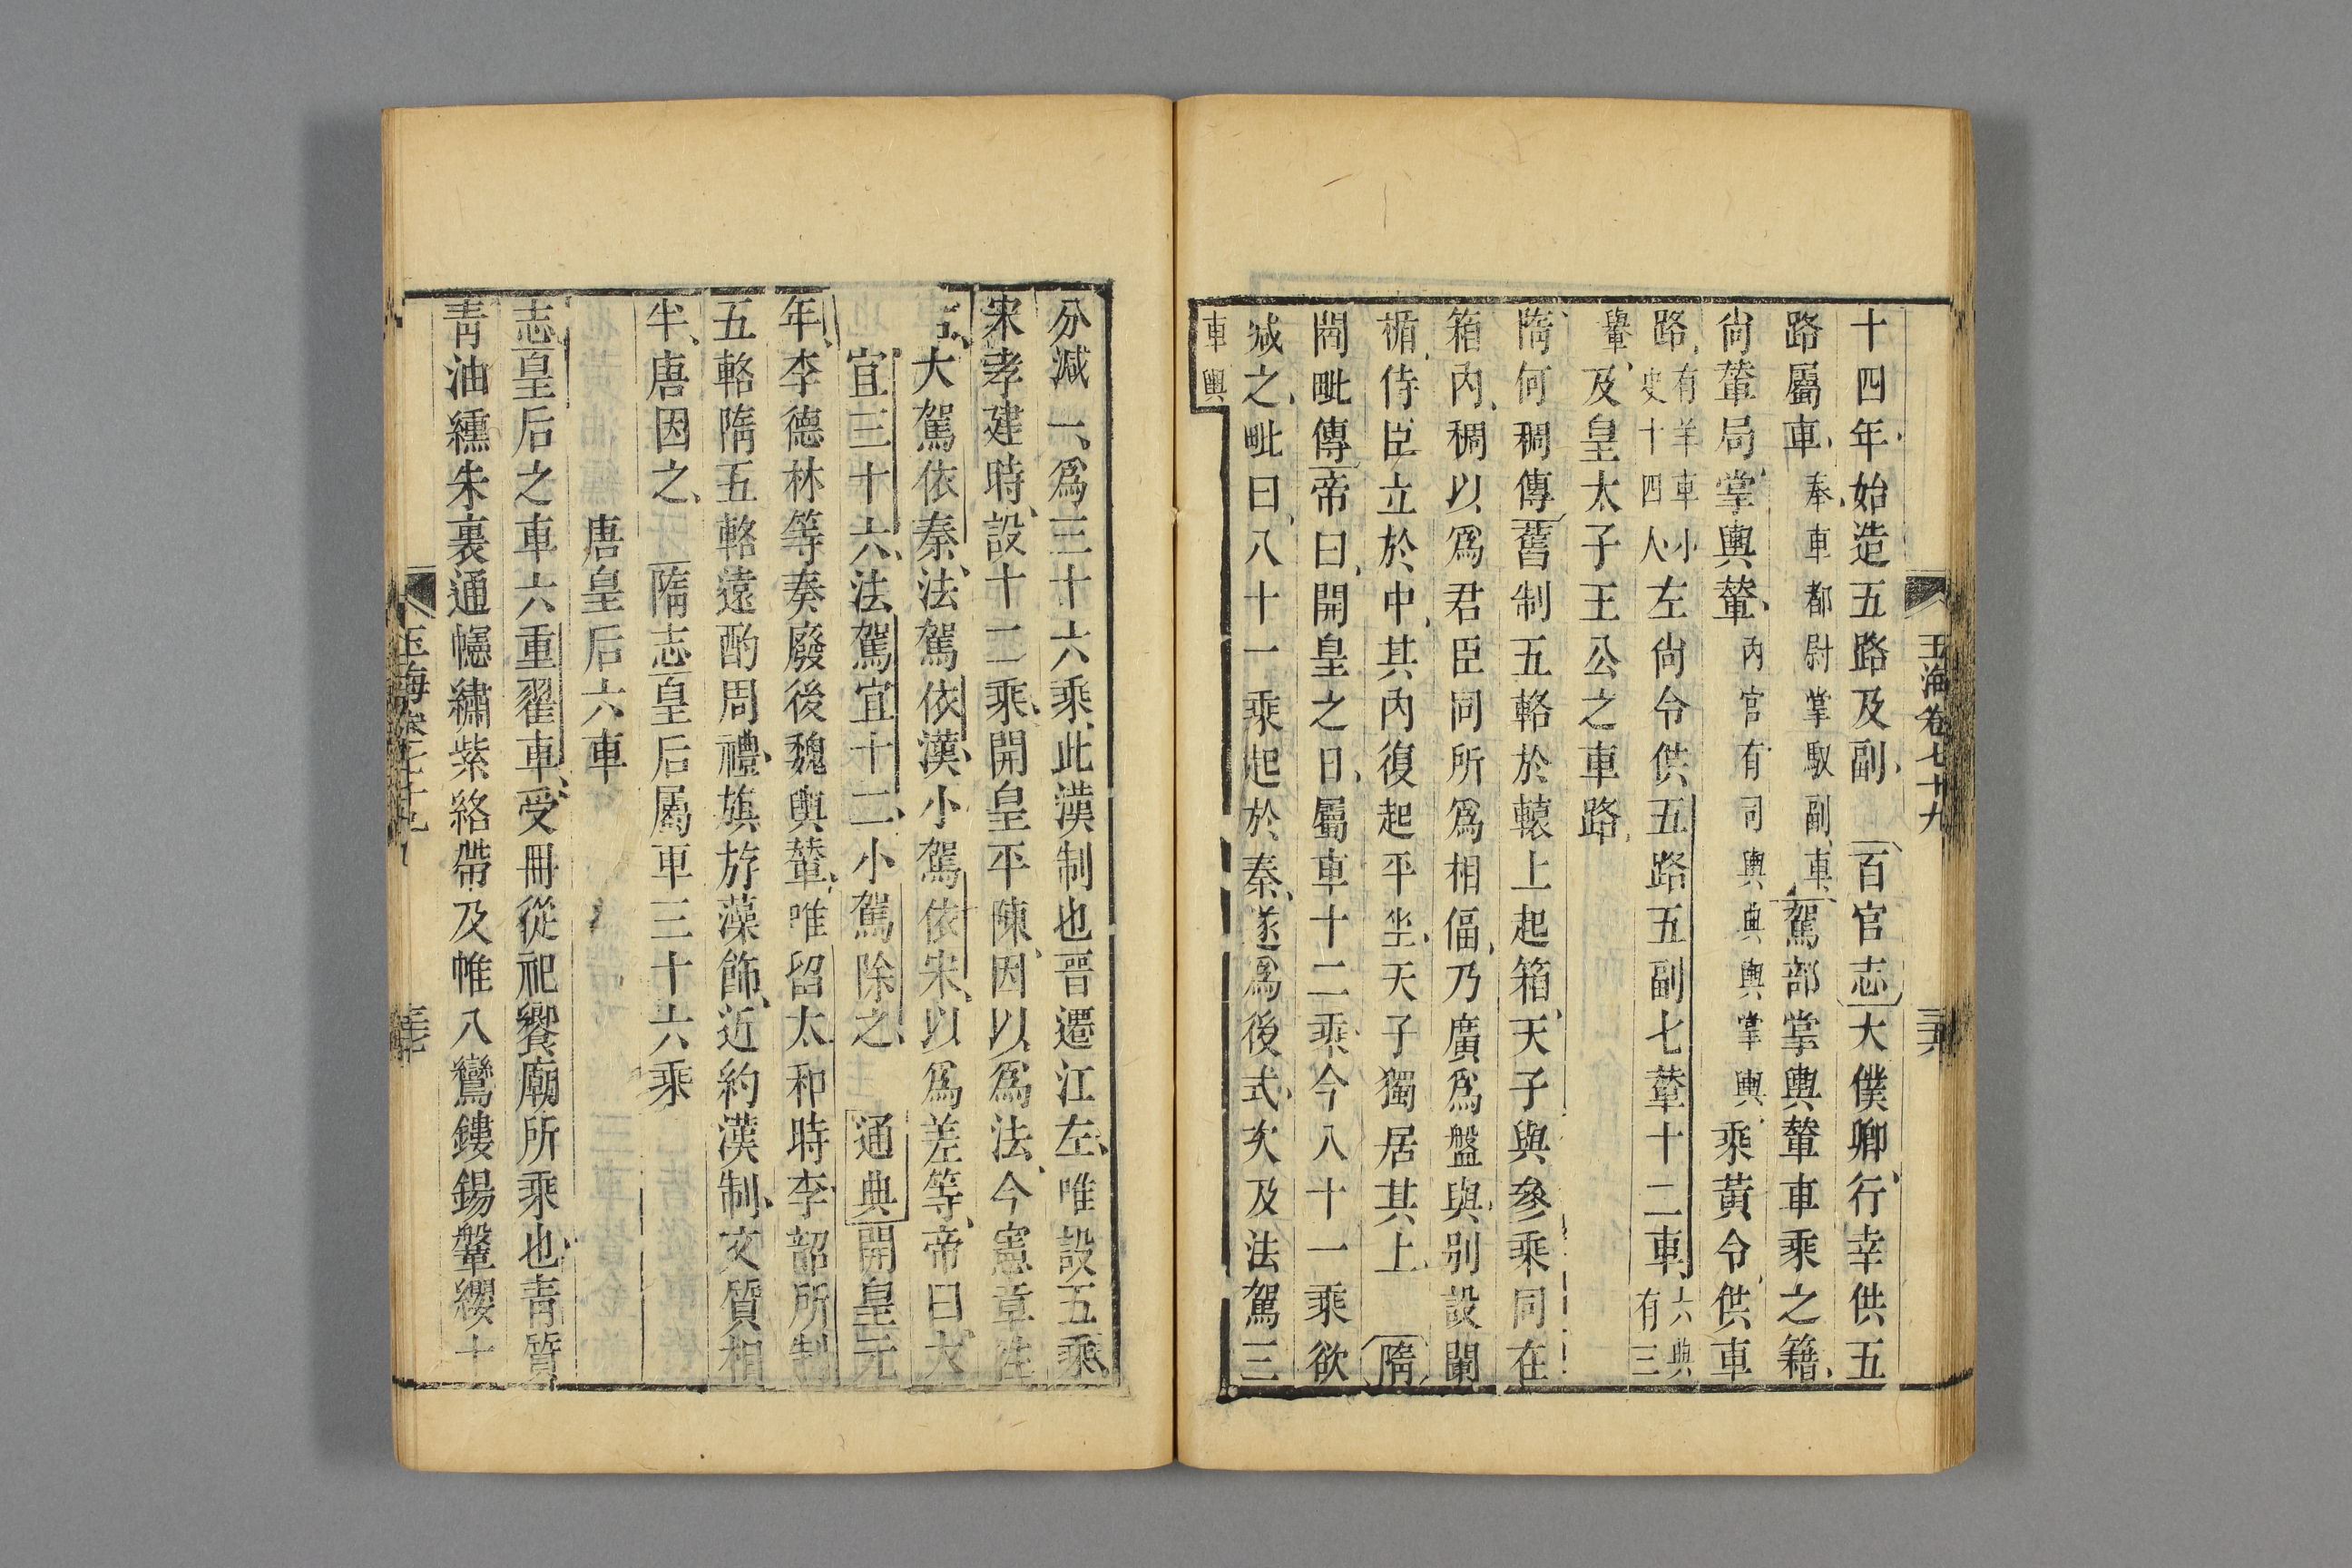 玉海卷七十九
十四年始造五路及副 百官志大僕卿行幸供五
路屬車奉車都尉掌馭副車駕部掌輿輦車乘之籍
尙輦局掌輿輦內官有司輿典輿掌輿乘黃令供車
路有羊車小史十四人左尙令供五路五副七輦十二車六典有三
輦及皇太子王公之車路
隋何稠傳舊制五輅於轅上起箱天子與參乘同在
箱內稠以爲君臣同所爲相偪乃廣爲盤輿別設闌
楯侍臣立於中其內復起平坐天子獨居其上 隋
閻毗傳帝曰開皇之日屬車十二乘今八十一乘欲
减之毗曰八十一乘起於秦遂爲後式次及法駕三
車輿
分减一爲三十六乘此漢制也晉遷江左唯設五乘
宋孝建時設十二乘開皇平陳因以爲法今憲章往
大駕依秦法駕依漢小駕依宋以爲差等帝曰大
宜三十六法駕宜十二小駕除之 通典開皇元
年李德林等奏廢後魏輿輦唯留太和時李韶所制
五輅隋五輅遠酌周禮旗斿藻飾近約漢制文質相
半唐因之 隋志皇后屬車三十六乘
唐皇后六車
志皇后之車六重翟車受冊從祀饗廟所乘也青質
青油纁朱裏通幰繡紫絡帶及帷八鸞鏤鍚鞶纓十
玉海卷七十九